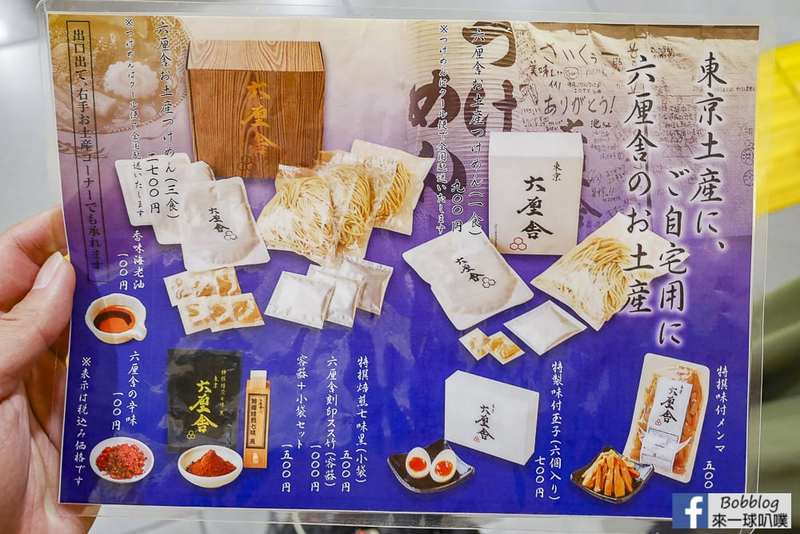 東京土産に、
ご自宅用に
六厘舎のお土産
つけ
めん
さいくぅー
美味しい
ありがとう!
六厘舎お土産つけめん(一食)
九〇〇円
※つけめんはクール便で全国配送いたします
東京
六厘舎
六厘舎
六厘舎お土産つけめん(三食)
二七〇〇円
※つけめんはクール便で全国配送いたします
六厘舎
六厘舎
出口出て、右手お土産コーナーでも承れます
特撰味付メンマ
五〇〇
六厘舎
特製味付玉子(六個入り)
七〇〇円
六厘舎
特撰焙煎七味黒(小袋)
五〇〇円
六厘舎刻印スス竹(容器)
一〇〇〇円
容器+小袋セット
一五〇〇円
東京
六厘舎
香味海老油
一〇〇円
六厘舎の辛味
一〇〇円
※表示は税込み価格です
Bobblog
來一球叭噗